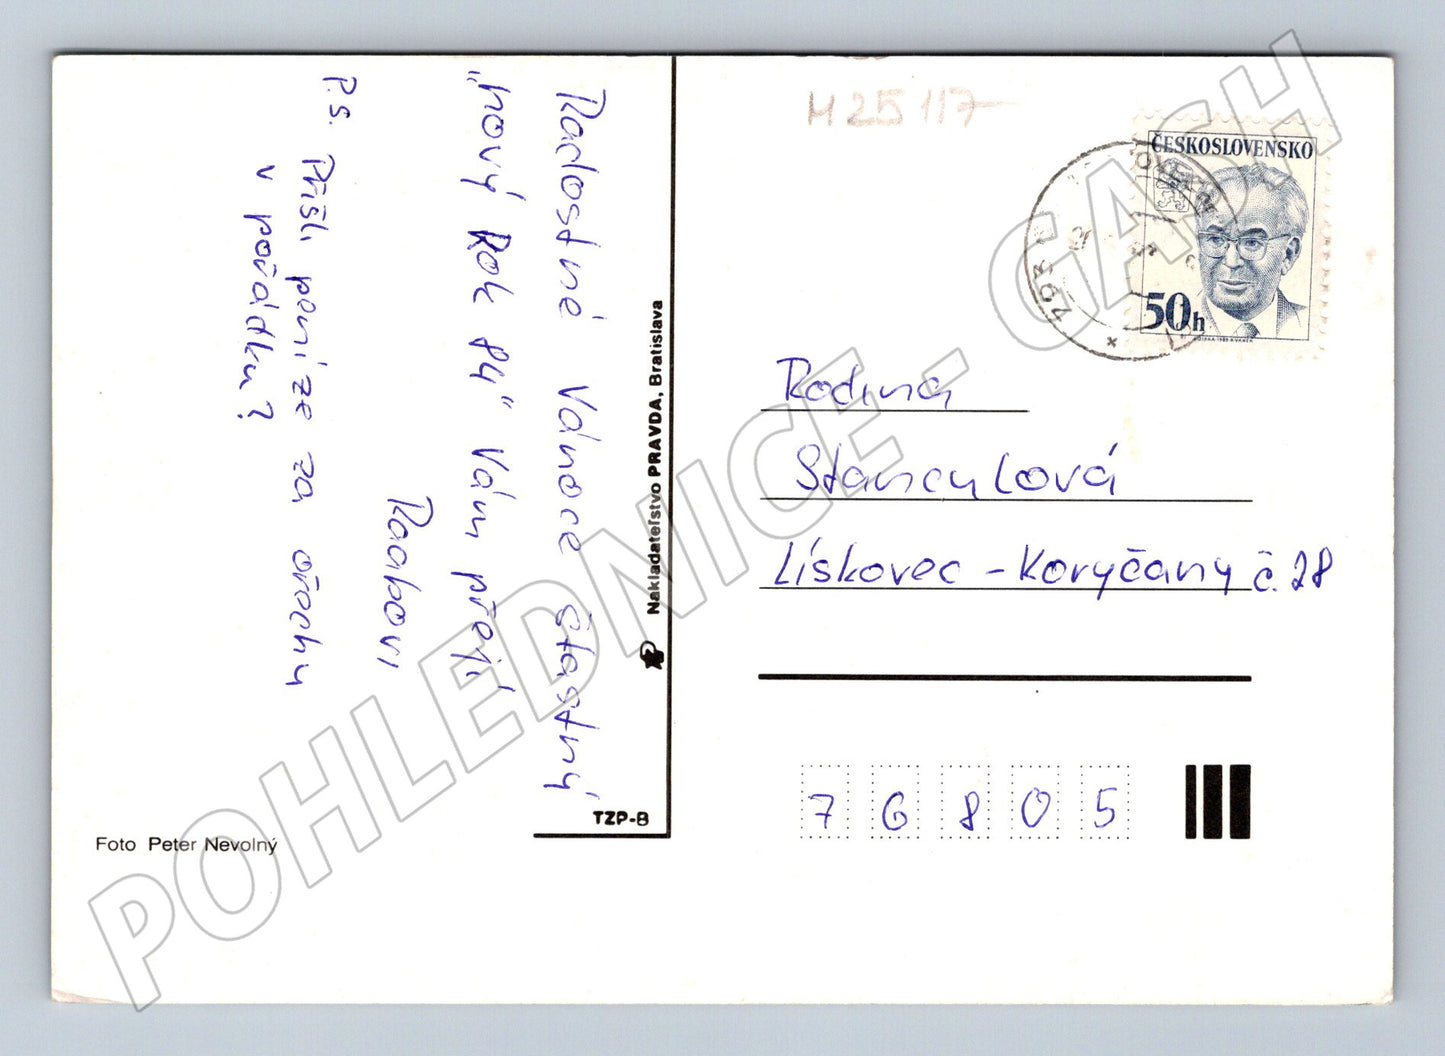 Radostné Vánoce šťastný
„nový Rok 84“ Vám přejí
Raabovi
P.S. Přišli peníze za ořechy
v pořádku?
Nakladateľstvo PRAVDA, Bratislava
TZP-B
Foto Peter Nevolný
M 25 117
ČESKOSLOVENSKO
50h
Rodina
Stanculová
Lískovec - Koryčany č. 28
76805
POHLEDNICE - GASH